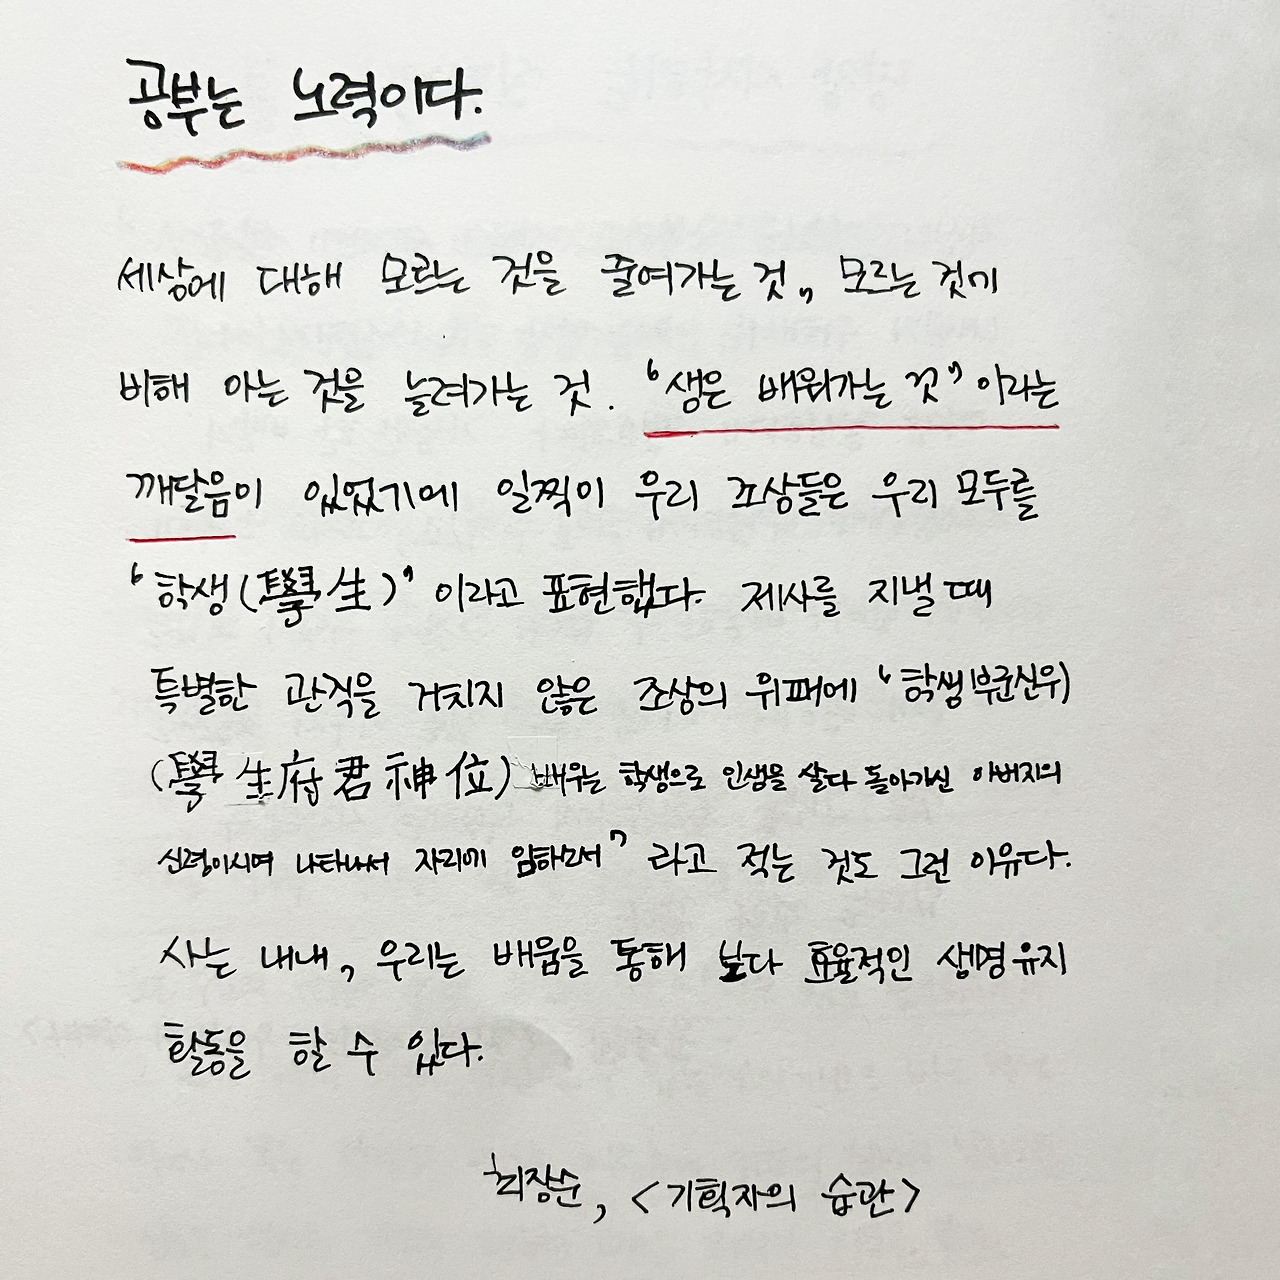 공부는 노력이다.
세상에 대해 모르는 것을 줄여가는 것, 모르는 것에
비해 아는 것을 늘려가는 것. "생은 배워가는 것" 이라는
깨달음이 있었기에 일찍이 우리 조상들은 우리 모두를
'학생(學生)' 이라고 표현했다. 제사를 지낼 때
특별한 관직을 거치지 않은 조상의 위패에 '학생부군신위)
(學生府君神位) 배우는 학생으로 인생을 살다 돌아가신 아버지의
신령이시여 나타나서 자리에 임하소서" 라고 적는 것도 그런 이유다.
사는 내내, 우리는 배움을 통해 보다 효율적인 생명유지
활동을 할 수 있다.
최장순, <기획자의 습관>